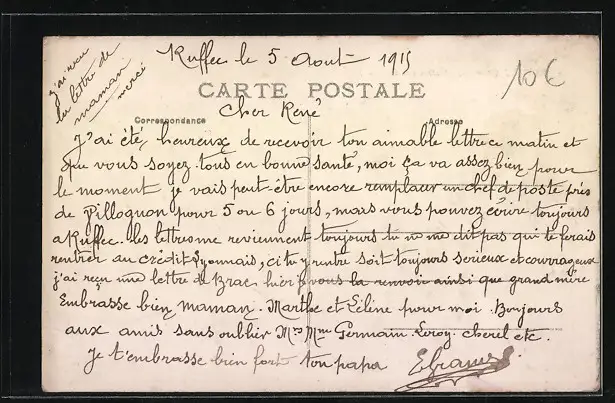 Ruffec le 5 Aout 1915
j'ai reçu
la lettre de
maman
merci
10€
CARTE POSTALE
Cher René
Correspondance
Adresse
J'ai été, heureux de recevoir ton aimable lettre ce matin et
que vous soyez tous en bonne santé, moi ça va assez bien pour
le moment je vais peut-être encore remplacer un chef de poste près
de pour 5 ou 6 jours, mais vous pouvez écrire toujours
a Ruffec. les lettres me reviennent toujours tu ne me dit pas qui te ferais
rentrer au crédit Lyonnais, ci tu y rentre soit toujours serieux et courrageux
j'ai reçu une lettre de hier vous la renvoir ainsi que grand mère
Embrasse bien maman. Marthe et Céline pour moi. Bonjours
aux amis sans oublier Mr Mme Germain. Leroy cherel etc.
Je t'embrasse bien fort ton papa